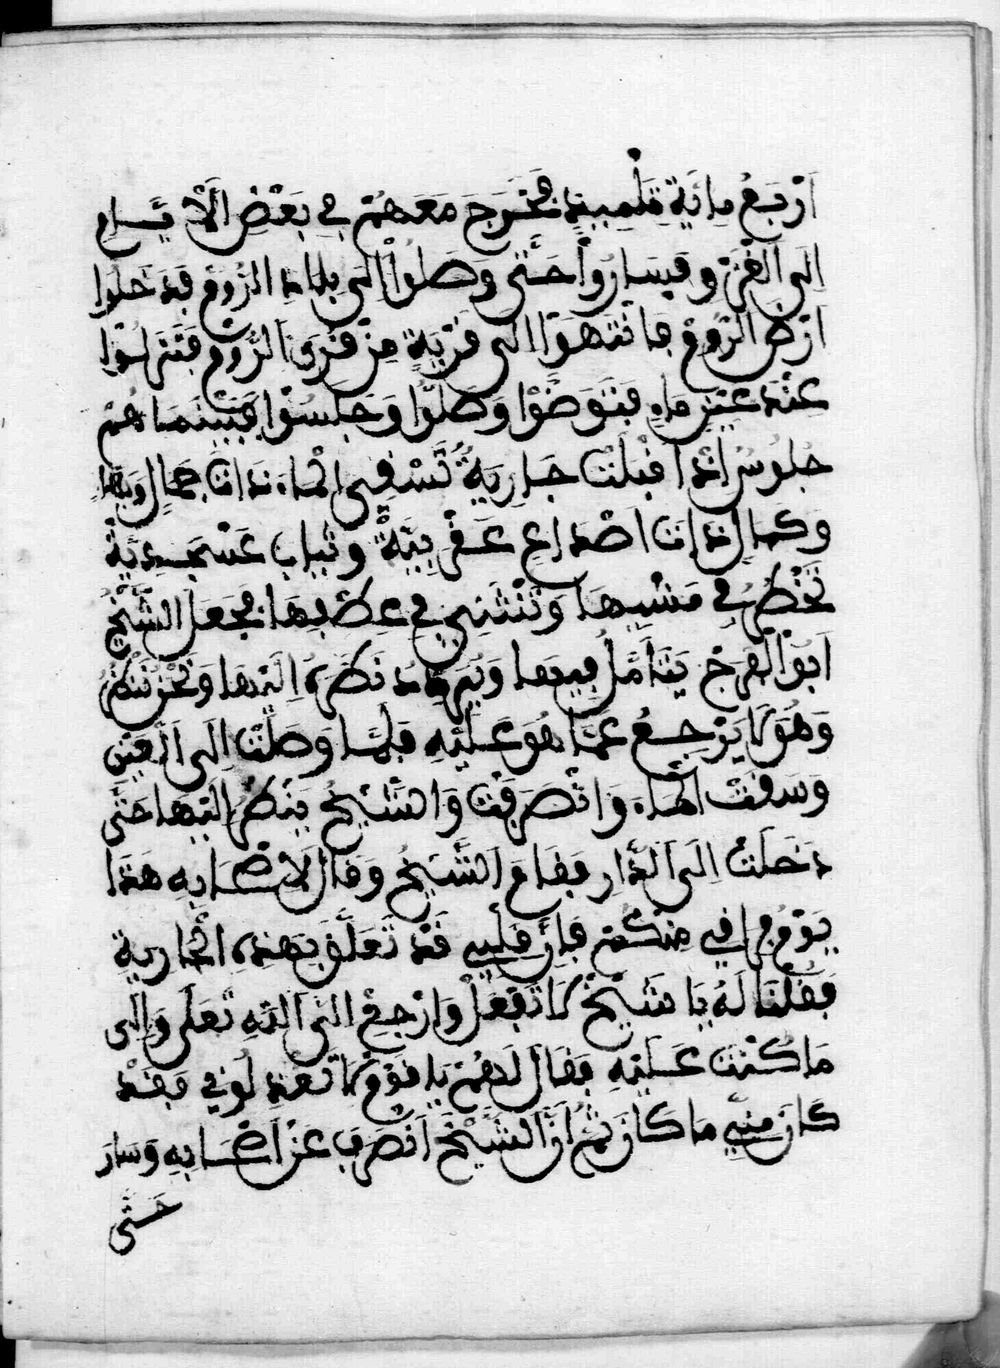 اَرْبَعُ مِائَةِ تِلْمِيذٍ فَخَرَجَ مَعَهُمْ فِي بَعْضِ الْأَيَّامِ
اِلَى الْغَزْوِ فَسَارُواْ حَتَّى وَصَلُواْ اِلَى بِلَادِ الرُّومِ فَدَخَلُوا
اَرْضَ الرُّومِ فَانْتَهَوْا اِلَى قَرْيَةٍ مِنْ قُرَى الرُّومِ فَنَزَلُوْا
عِنْدَ عَيْنِ مَاءٍ فَتَوَضَّوْا وَصَلَّوْا وَجَلَسُوْا فَبَيْنَمَا هُمْ
جُلُوسٌ اِذْ اَقْبَلَتْ جَارِيَةٌ تَسْقِي الْمَاءَ ذَاتَ جَمَالٍ وَبَهَاءٍ
وَكَمَالٍ ذَاتَ اَصْدَاعٍ عَقْرَبِيَّةٌ وَثِيَابٍ عَسْجَدِيَّةٌ
تَخْطُرُ فِي مَشْيِهَا وَتَنْثَنِي فِي عِطْفِهَا فَجَعَلَ الشَّيْخُ
اَبُوْ الْفَرَجْ يَتَاَمَّلُ فِيهَا وَيُرَدِّدُ نَظَرَهُ اِلَيْهَا وَنَحْنُ نَنْظُرُ
وَهُوَ لَا يَرْجِعُ عَمَّا هُوَ عَلَيْهِ فَلَمَّا وَصَلَتْ اِلَى الْعَيْنِ
وَسَقَتْ الْمَاءَ وَانْصَرَفَتْ وَالشَّيْخُ يَنْظُرُ اِلَيْهَا حَتَّى
دَخَلَتْ اِلَى الدَّارِ فَقَامَ الشَّيْخُ وَقَالَ لِاَصْحَابِهِ هَذَا
يَوْمُ فِرَاقِي مِنْكُمْ فَاِنَّ قَلْبِي قَدْ تَعَلَّقَ بِهَذِهِ الْجَارِيَةِ
فَقُلْنَا لَهُ يَا شَيْخُ لَا تَفْعَلْ وَارْجِعْ اِلَى اللّهِ تَعَلَى وَاِلَى
مَا كُنْتَ عَلَيْهِ فَقَالَ لَهُمْ يَا قَوْمُ لَا تَعْذِلُونِي فَقَدْ
كَانَ مِنِّي مَا كَانَ ثُمَّ اَنَّ الشَّيْخَ اَنْصَرَفَ عَنْ اَصْحَابِهِ وَسَارَ
حَتَّى